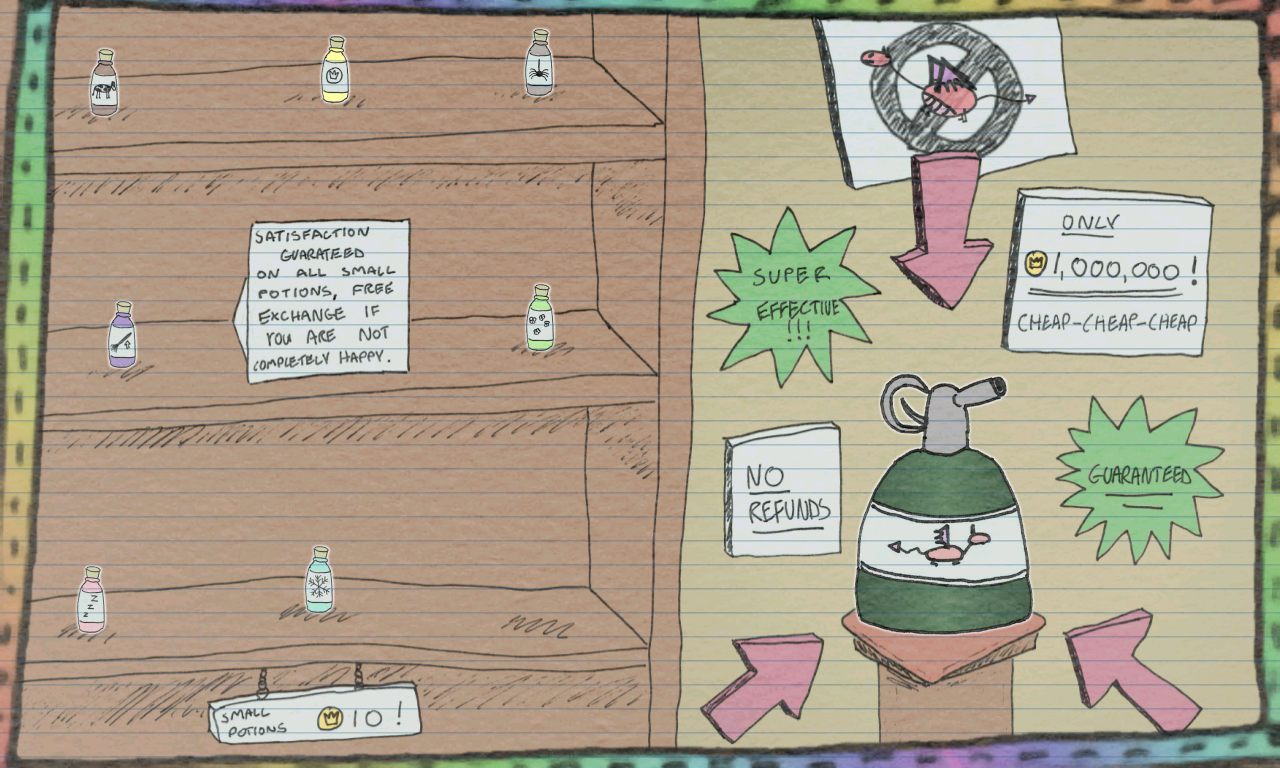 SATISFACTION
GUARATEED
ON ALL SMALL
POTIONS, FREE
EXCHANGE IF
YOU ARE NOT
COMPLETELY HAPPY.
Z
Z
Z
SMALL
POTIONS
10!
SUPER
EFFECTIVE
!!!
ONLY
1,000,000!
CHEAP-CHEAP-CHEAP
NO
REFUNDS
GUARANTEED